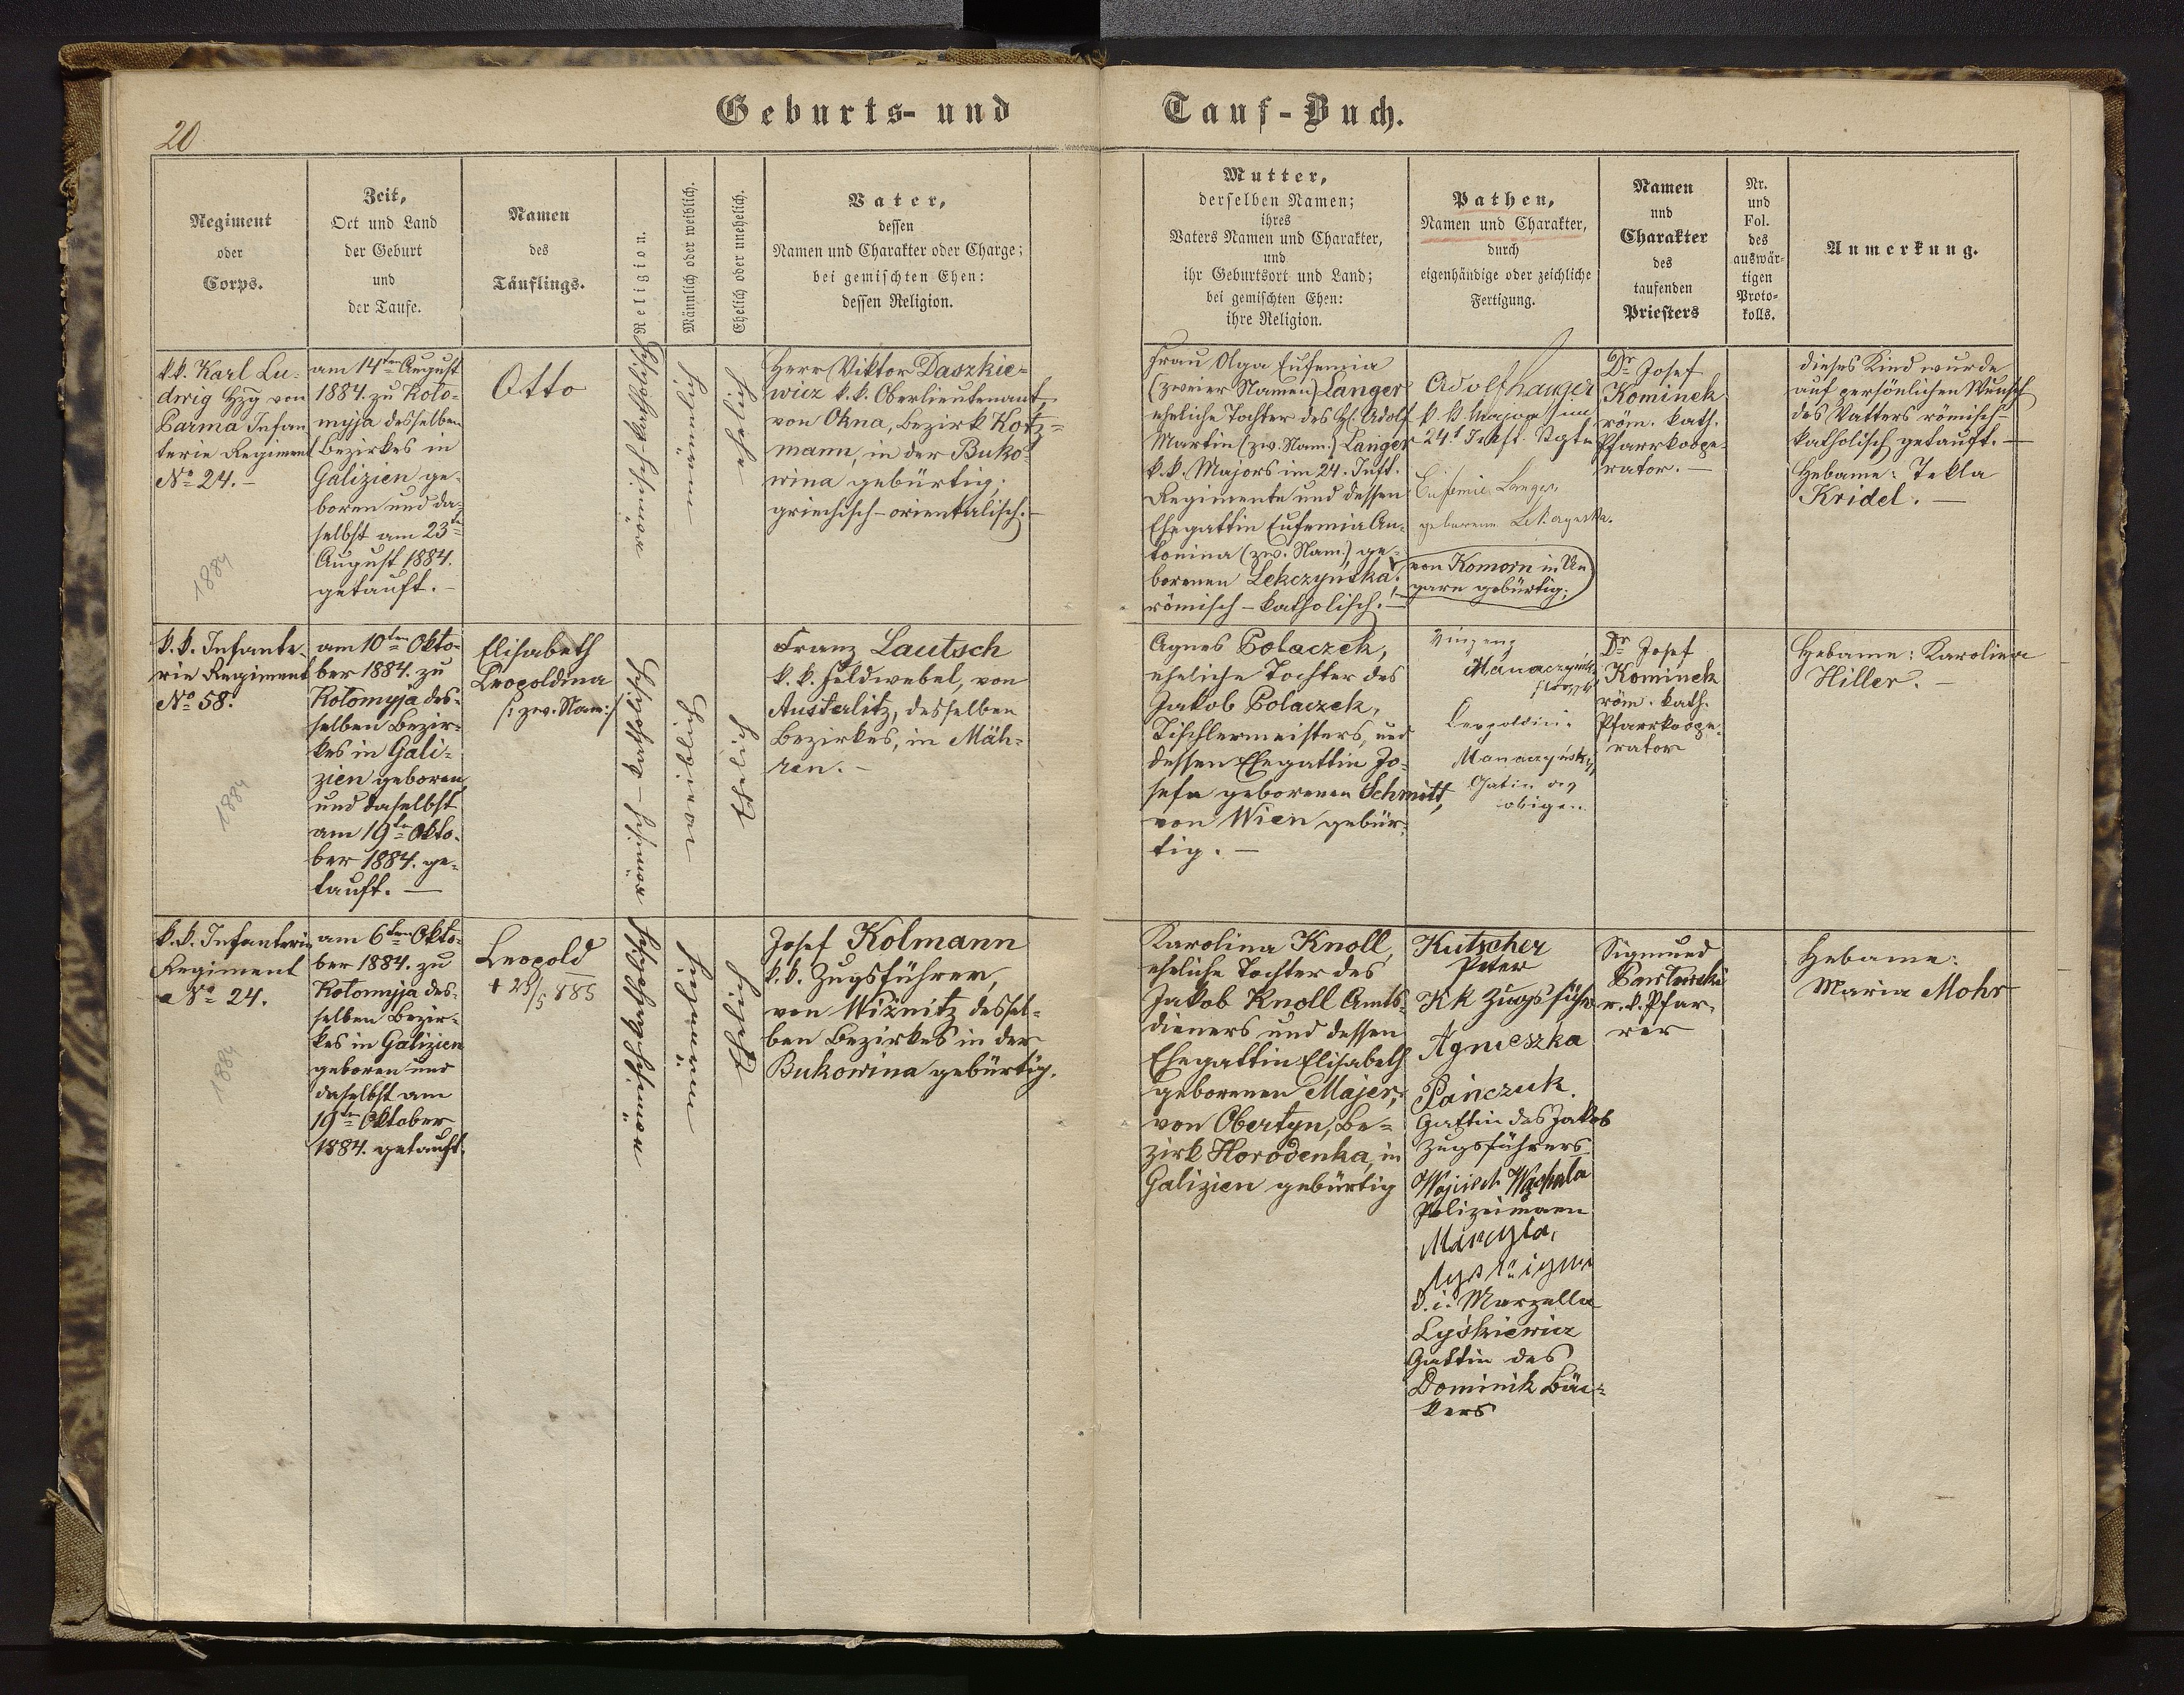 Geburts- und Tauf-Buch.
20
Regiment
oder
Corps.
Zeit,
Ort und Land
der Geburt
und
der Taufe.
Namen
des
Täuflings.
Religion.
Männlich oder weiblich.
Ehelich oder unehelich.
Vater,
dessen
Namen und Charakter oder Charge;
bei gemischten Ehen:
dessen Religion.
Mutter,
derselben Namen;
ihres
Vaters Namen und Charakter,
und
ihr Geburtsort und Land;
bei gemischten Ehen:
ihre Religion.
Pathen,
Namen und Charakter,
durch
eigenhändige oder zeichliche
Fertigung.
Namen
und
Charakter
des
taufenden
Priesters
Nr.
und
Fol.
des
auswär-
tigen
Proto-
kolls.
Anmerkung.
k.k. Karl Lu-
dwig Hzg von
Parma Infan
terie Regiment
No 24.-
1884
am 14ten August
1884. zu Koło-
myja desselben
Bezirkes in
Galizien ge-
boren und da-
selbst am 23ten
August 1884.
getauft.-
Otto
römisch-katholisch
männlich
ehelich
Herr Viktor Daszkie-
wicz k.k. Oberlieutenant,
von Okna, Bezirk Kotz-
mann, in der Buko-
wina gebürtig;
griechisch-orientalisch.-
Frau Olga Eufemia
(zweier Namen) Langer
eheliche Tochter des H. Adolf
Martin (zw. Nam.) Langer
k.k. Majors im 24. Inft.
Regimente und dessen
Ehegattin Eufemia An-
tonina (zw. Nam.) ge-
borenen Lekczyńska.
römisch-katholisch.-
Adolf Langer
k. k. Major im
24t Inft. Rgte
Eufemie Langer,
geborene
von Komorn in Un
garn gebürtig;
Dr Josef
Kominek
röm. kath.
Pfarrkoope-
rator.-
dieses Kind wurde
auf persönlichen Wunsch
des Vatters römisch-
katholisch getauft.-
Hebame: Tekla
Kridel.-
k.k. Infante-
rie Regiment
No 58.
1884
am 10ten Okto-
ber 1884. zu
Kołomyja des-
selben Bezir-
kes in Gali-
zien geboren,
und daselbst
am 19ten Okto-
ber 1884. ge-
tauft.-
Elisabeth
Leopoldina
/: zw. Nam:/
römisch-katholisch
weiblich
ehelich
Franz Lautsch
k.k. Feldwebel, von
Austerlitz, desselben
Bezirkes, in Mäh-
ren.-
Agnes Polaczek,
eheliche Tochter des
Jakob Polaczek,
Tischlermeisters, und
dessen Ehegattin Jo-
sefa geborenen Schmitt,
von Wien gebür-
tig.-
Vinzenz
Manaczyński
Leopoldine
Manaczyńsky
Gatin des
obigen
Dr Josef
Kominek
röm. kath.
Pfarrkoope-
rator
Hebame: Karolina
Hiller.-
k.k. Infanterie
Regiment
No 24.
1884
am 6ten Okto-
ber 1884. zu
Kołomyja des-
selben Bezir-
kes in Galizien
geboren und
daselbst am
19ten Oktober
1884. getauft.
Leopold
+ 25/5 885
römisch katholisch
männlich
ehelich
Josef Kolmann
k.k. Zugsführer,
von Wiżnitz dessel-
ben Bezirkes in der
Bukowina gebürtig.
Karolina Knoll,
eheliche Tochter des
Jakob Knoll Amts-
dieners und dessen
Ehegattin Elisabeth
geborenen Majer,
von Obertyn, Be-
zirk Horodenka, in
Galizien gebürtig
Kutscher
Peter
KK Zugsführ
Agnieszka
Pańczuk.
Gattin des Jakob
Zugsführers
Wojciech
Polizeimann
d. i. Marzella
Lyśkiewicz
Gattin des
Dominik Bäc-
kers
Sigmund
Pawłowski
r.k. Pfar-
rer
Hebame:
Maria Mohr